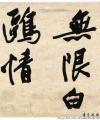 無限白
鷗情